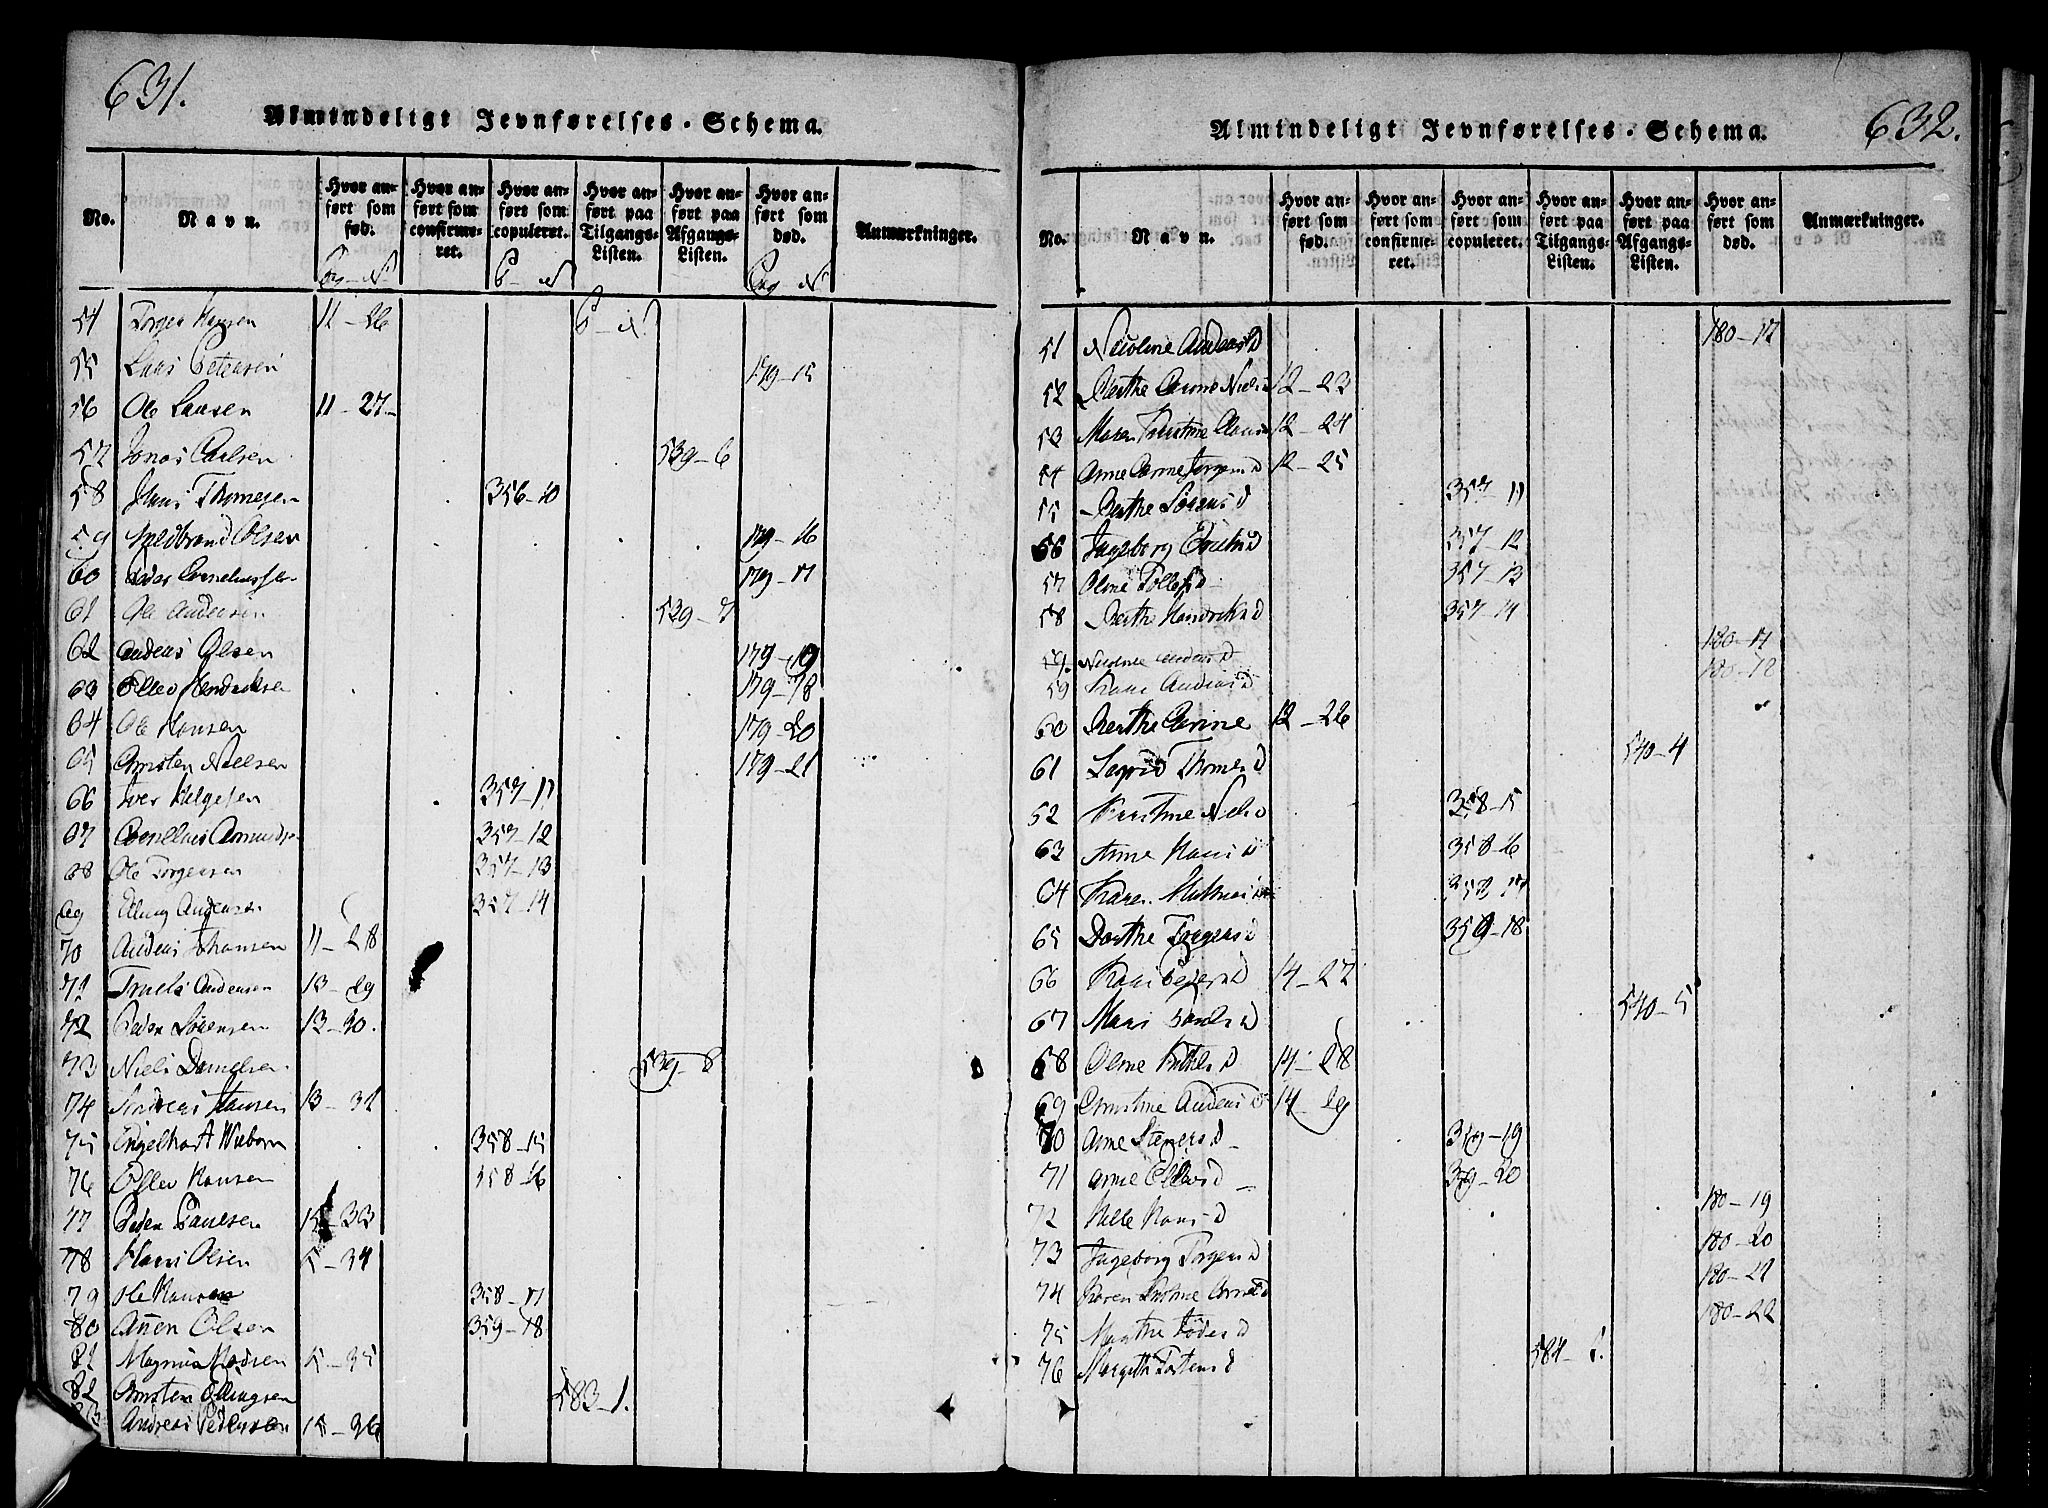 631.
Almindeligt Jevnførelses-Schema.
No.
Navn.
Hvor anført som fød.
Hvor anført som confirmeret.
Hvor anført som copuleret.
Hvor anført paa Tilgangs-Listen.
Hvor anført paa Afgangs-Listen.
Hvor anført som død.
Anmærkninger.
54 Jørgen Hansen 11-26
55 Lars Petersen 179-15
56 Ole Larsen 11-27
57 Jonas Carlsen 539-6
58 Hans Thomesen 356-10
59 Olsen 179-16
60 Peder Corneliussen 179-17
61 Ole Andersen 539-7
62 Anders Olsen 179-19
63 Ellev Hendriksen 179-18
64 Ole Hansen 179-20
65 Christen Nielsen 179-21
66 Iver Helgesen 357-11
67 Cornelius 357-12
68 Ole Jørgensen 357-13
69 Elling Andersen 357-14
70 Anders Johansen 11-28
71 Truels Andersen 13-29
72 Peder Sørensen 13-30.
73 Niels Danielsen 539-8
74 Andreas Hansen 13-31
75 Engelhart Wiborn 358-15
76 Ellev Hansen 358-16
77 Peder Paulsen 15-33
78 Hans Olsen 15-34
79 Ole Hansen 358-17
80 Anen Olsen 359-18
81 Magnus Madsen 15-35
82 Christen Ellingsen 583-1.
83 Andreas Pedersen 15-36
632.
Almindeligt Jevnførelses-Schema.
No.
Navn.
Hvor anført som fød.
Hvor anført som confirmeret.
Hvor anført som copuleret.
Hvor anført paa Tilgangs-Listen.
Hvor anført paa Afgangs-Listen.
Hvor anført som død.
Anmærkninger.
51 Nicoline Andersd 180-17
52 Berthe Carine Niels 12-23
53 Maren Kirstine Hans 12-24
54 Anne Carine Jørgensd 12-25
55 Berthe Sørensd 357-11
56 Ingeborg Erichsd 357-12
57 Oline Tollefsd 357-13
58 Berthe Hendriksd 357-14
59 Nicoline Andersd 180-17
59 Karen Andersd 180-18
60 Berthe Carine 12-26
61 Sigrid Thomesd 540-4
62 Kirstine Nielsd 358-15
63 Anne Hansd 358-16
64 Karen 358-17
65 Dorthe Jørgensd 359-18
66 Karen Pedersd 14-27
67 Maren 540-5
68 Oline 14-28
69 Christine Andersd 14-29
70 Anne 359-19
71 Anne Ellevsd 359-20
72 Helle Hansd 180-19
73 Ingeborg Jørgensd 180-20
74 Karen 180-21
75 Marthe 180-22
76 Margith Torstensd 584-1.